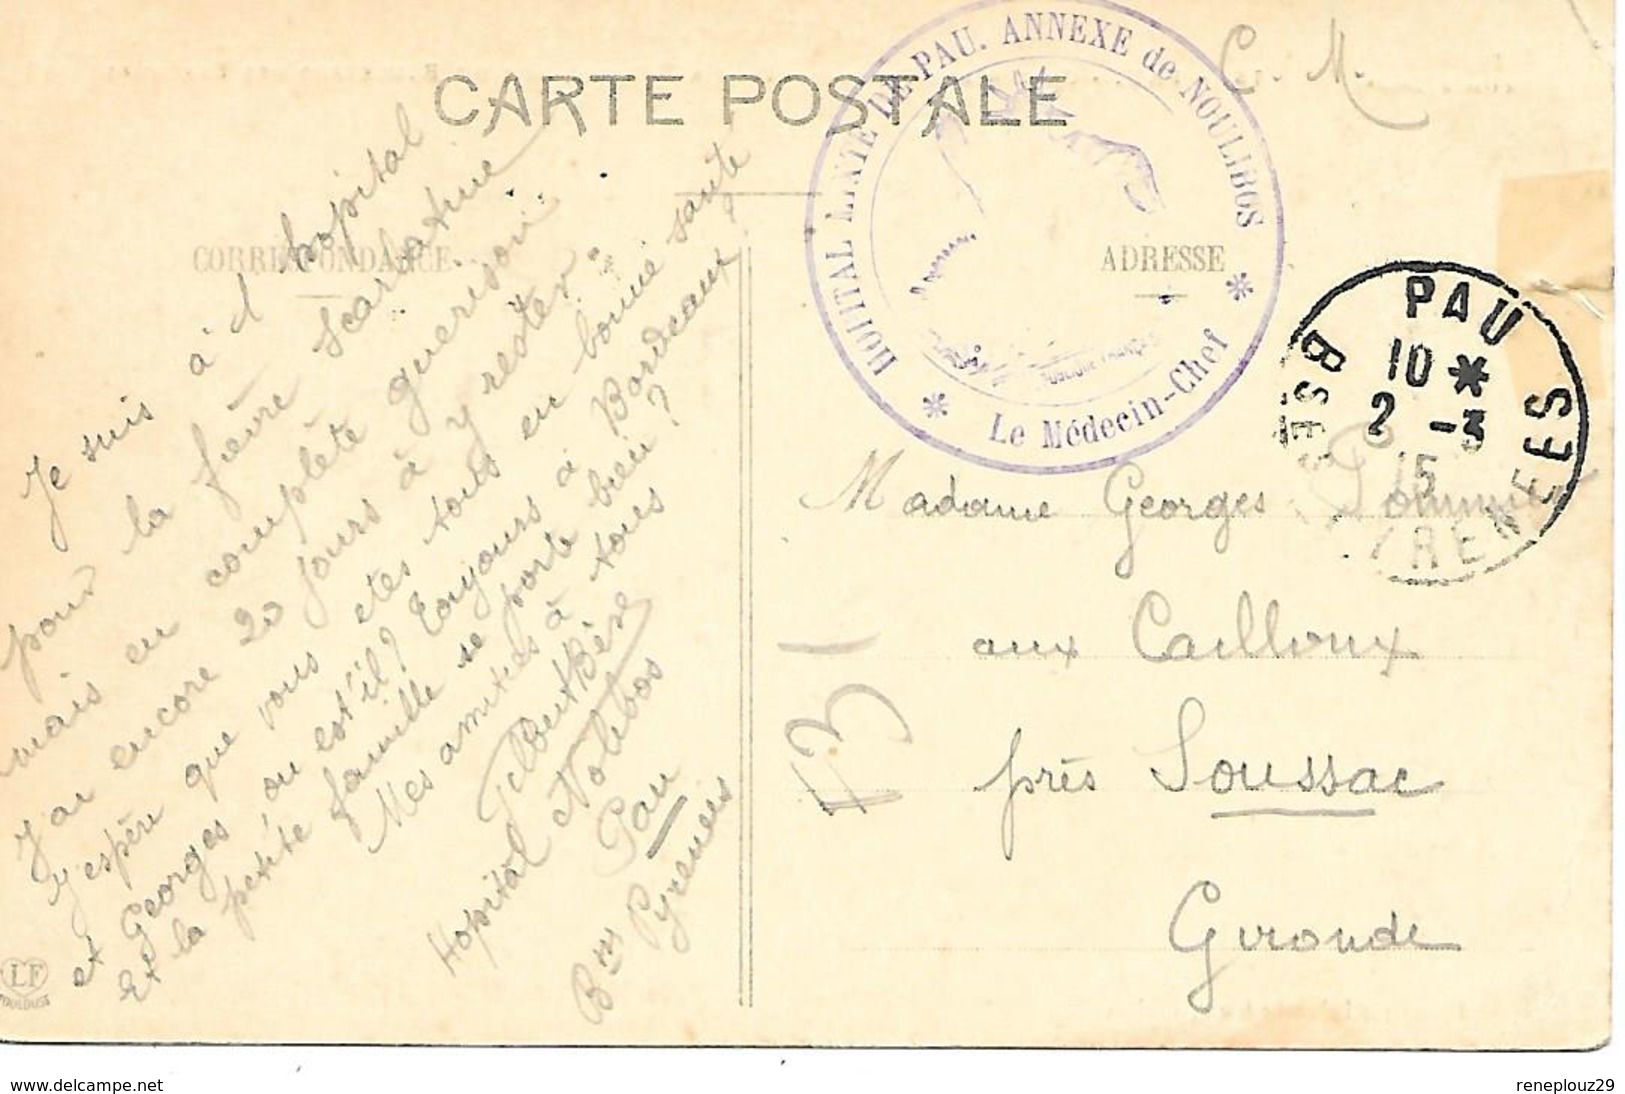 C. M.
CARTE POSTALE
CORRESPONDANCE
ADRESSE
HOPITAL MIXTE DE PAU. ANNEXE de NOULIBOS
Le Médecin-Chef
PAU
10 *
2 -3
15
BSES PYRENEES
Je suis à l'hopital
pour la fièvre scarlatine
mais en complète guerison
J'ai encore 20 jours à y rester.
J'espère que vous etes tous en bonne santé
et Georges ou est t'il? Toujours à Bordeaux?
Et la petite famille se porte bien?
Mes amities à tous
Hopital Nolibos
Pau
Bses Pyrenées
Madame Georges
aux Cailloux
près Soussac
Gironde
13
LF
TOULOUSE
www.delcampe.net
reneplouz29